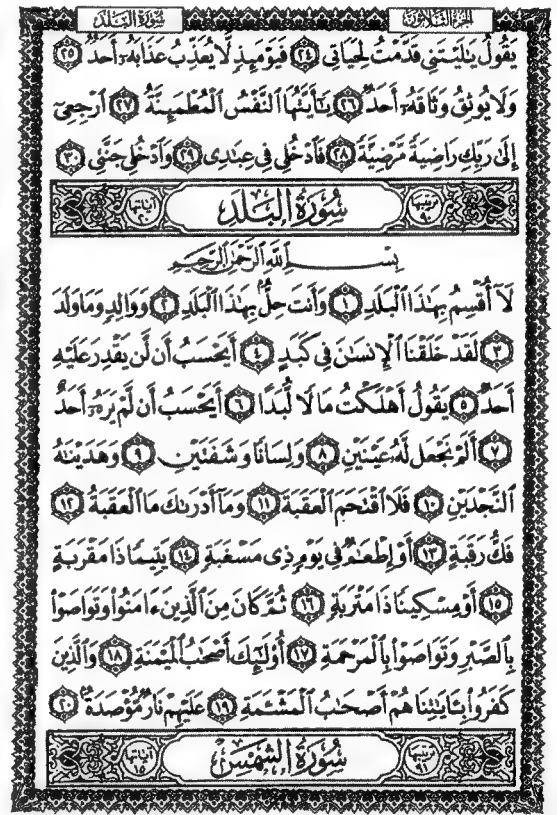 سُورَةُ البَلَدِ الجُزْءُ الثَّلَاثُونَ
يَقُولُ يَٰلَيْتَنِى قَدَّمْتُ لِحَيَاتِى ﴿٢٤﴾ فَيَوْمَئِذٍ لَّا يُعَذِّبُ عَذَابَهُۥٓ أَحَدٌ ﴿٢٥﴾
وَلَا يُوثِقُ وَثَاقَهُۥٓ أَحَدٌ ﴿٢٦﴾ يَٰٓأَيَّتُهَا ٱلنَّفْسُ ٱلْمُطْمَئِنَّةُ ﴿٢٧﴾ ٱرْجِعِىٓ
إِلَىٰ رَبِّكِ رَاضِيَةً مَّرْضِيَّةً ﴿٢٨﴾ فَٱدْخُلِى فِى عِبَٰدِى ﴿٢٩﴾ وَٱدْخُلِى جَنَّتِى ﴿٣٠﴾
ترتيبها ٩٠ سُورَةُ البَلَدِ آياتها ٢٠
بِسْمِ ٱللَّهِ ٱلرَّحْمَٰنِ ٱلرَّحِيمِ
لَآ أُقْسِمُ بِهَٰذَا ٱلْبَلَدِ ﴿١﴾ وَأَنتَ حِلٌّۢ بِهَٰذَا ٱلْبَلَدِ ﴿٢﴾ وَوَالِدٍ وَمَا وَلَدَ
﴿٣﴾ لَقَدْ خَلَقْنَا ٱلْإِنسَٰنَ فِى كَبَدٍ ﴿٤﴾ أَيَحْسَبُ أَن لَّن يَقْدِرَ عَلَيْهِ
أَحَدٌ ﴿٥﴾ يَقُولُ أَهْلَكْتُ مَالًا لُّبَدًا ﴿٦﴾ أَيَحْسَبُ أَن لَّمْ يَرَهُۥٓ أَحَدٌ
﴿٧﴾ أَلَمْ نَجْعَل لَّهُۥ عَيْنَيْنِ ﴿٨﴾ وَلِسَانًا وَشَفَتَيْنِ ﴿٩﴾ وَهَدَيْنَٰهُ
ٱلنَّجْدَيْنِ ﴿١٠﴾ فَلَا ٱقْتَحَمَ ٱلْعَقَبَةَ ﴿١١﴾ وَمَآ أَدْرَىٰكَ مَا ٱلْعَقَبَةُ ﴿١٢﴾
فَكُّ رَقَبَةٍ ﴿١٣﴾ أَوْ إِطْعَٰمٌ فِى يَوْمٍ ذِى مَسْغَبَةٍ ﴿١٤﴾ يَتِيمًا ذَا مَقْرَبَةٍ
﴿١٥﴾ أَوْ مِسْكِينًا ذَا مَتْرَبَةٍ ﴿١٦﴾ ثُمَّ كَانَ مِنَ ٱلَّذِينَ ءَامَنُوا۟ وَتَوَاصَوْا۟
بِٱلصَّبْرِ وَتَوَاصَوْا۟ بِٱلْمَرْحَمَةِ ﴿١٧﴾ أُو۟لَٰٓئِكَ أَصْحَٰبُ ٱلْمَيْمَنَةِ ﴿١٨﴾ وَٱلَّذِينَ
كَفَرُوا۟ بِـَٔايَٰتِنَا هُمْ أَصْحَٰبُ ٱلْمَشْـَٔمَةِ ﴿١٩﴾ عَلَيْهِمْ نَارٌ مُّؤْصَدَةٌۢ ﴿٢٠﴾
ترتيبها ٩١ سُورَةُ الشَّمْسِ آياتها ١٥